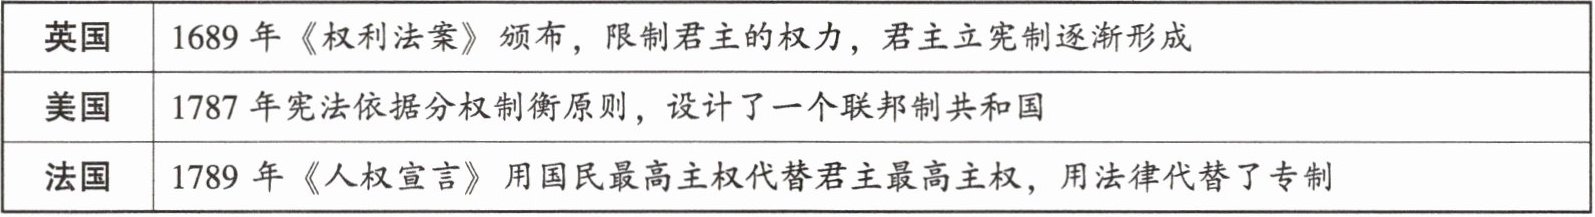 英国 1689 年《权利法案》颁布，限制君主的权力，君主立宪制逐渐形成
美国 1787 年宪法依据分权制衡原则，设计了一个联邦制共和国
法国 1789 年《人权宣言》用国民最高主权代替君主最高主权，用法律代替了专制